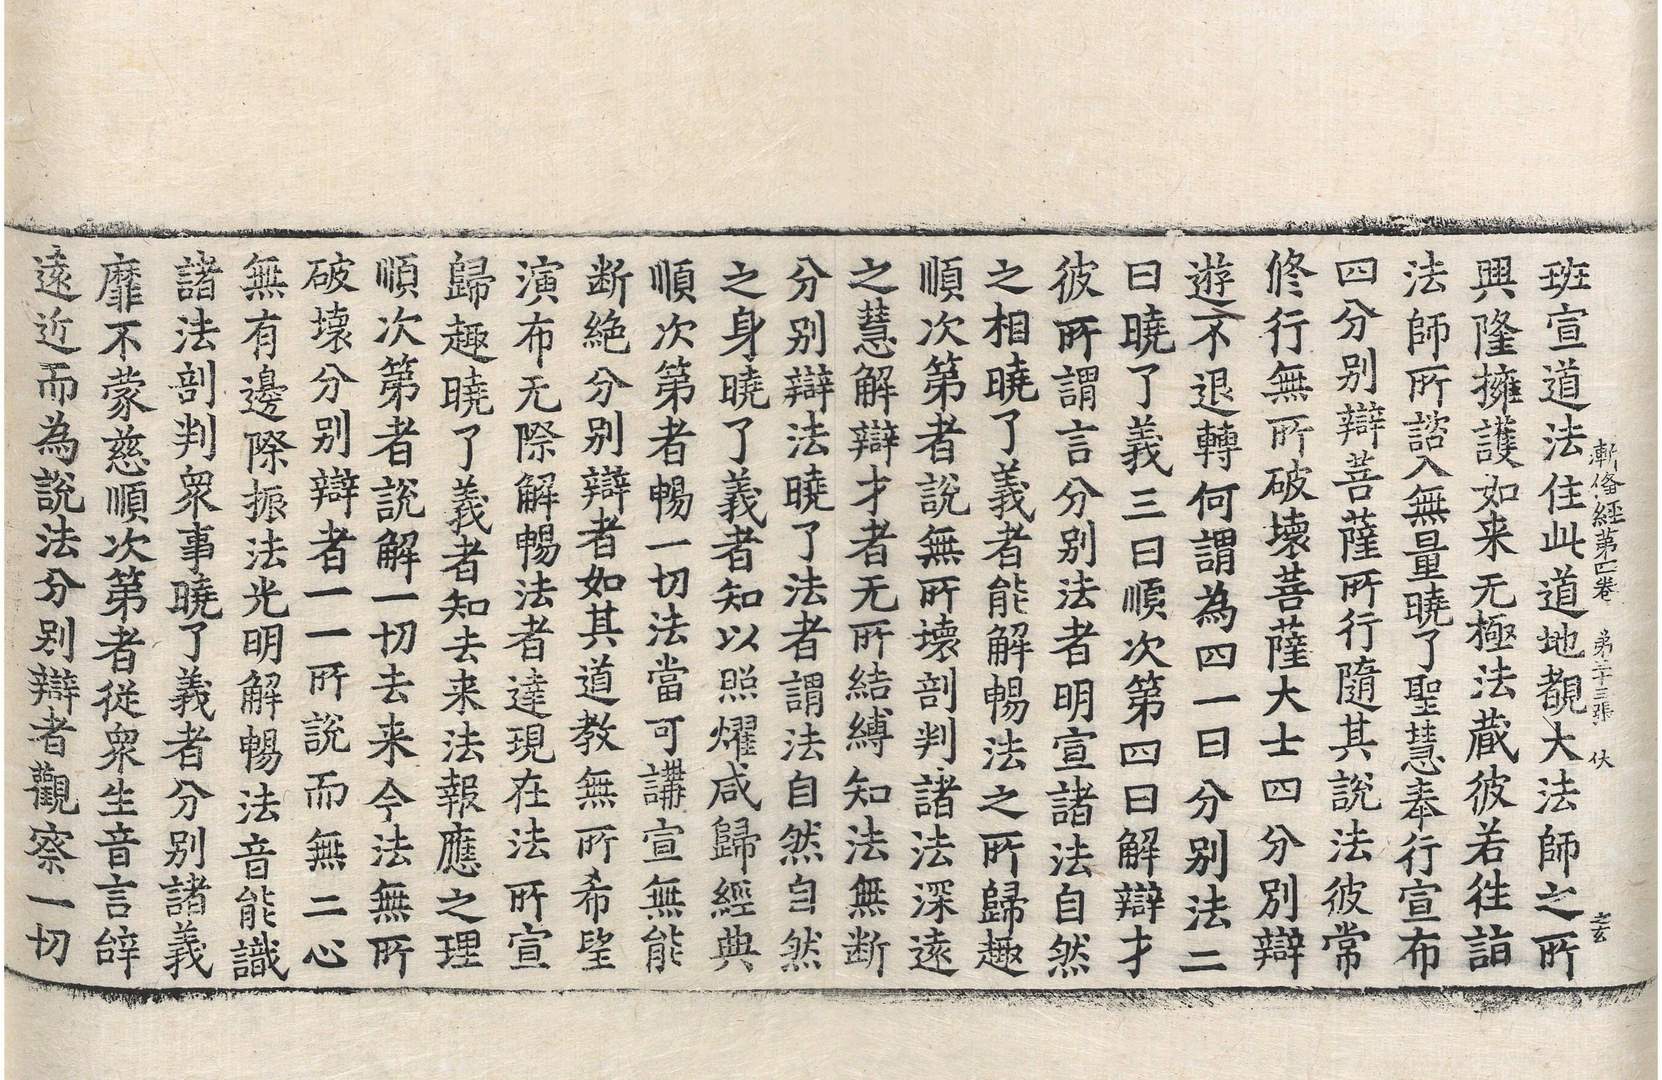 漸備經第四卷 第二十三張 伏 玄
班宣道法住此道地覩大法師之所
興隆擁護如来无極法蔵彼若往詣
法師所諮入無量曉了聖慧奉行宣布
四分别辯菩薩所行隨其說法彼常
修行無所破壞菩薩大士四分别辯
遊不退轉何謂為四一曰分别法二
曰曉了義三曰順次第四曰解辯才
彼所謂言分别法者明宣諸法自然
之相曉了義者能解暢法之所歸趣
順次第者說無所壞剖判諸法深遠
之慧解辯才者无所結縛知法無断
分别辯法曉了法者謂法自然自然
之身曉了義者知以照耀咸歸經典
順次第者暢一切法當可講宣無能
断絶分别辯者如其道教無所希望
演布无際解暢法者達現在法所宣
歸趣曉了義者知去来法報應之理
順次第者說解一切去来今法無所
破壞分别辯者一一所說而無二心
無有邊際振法光明解暢法音能識
諸法剖判衆事曉了義者分别諸義
靡不蒙慈順次第者從衆生音言辭
遠近而為說法分别辯者觀察一切